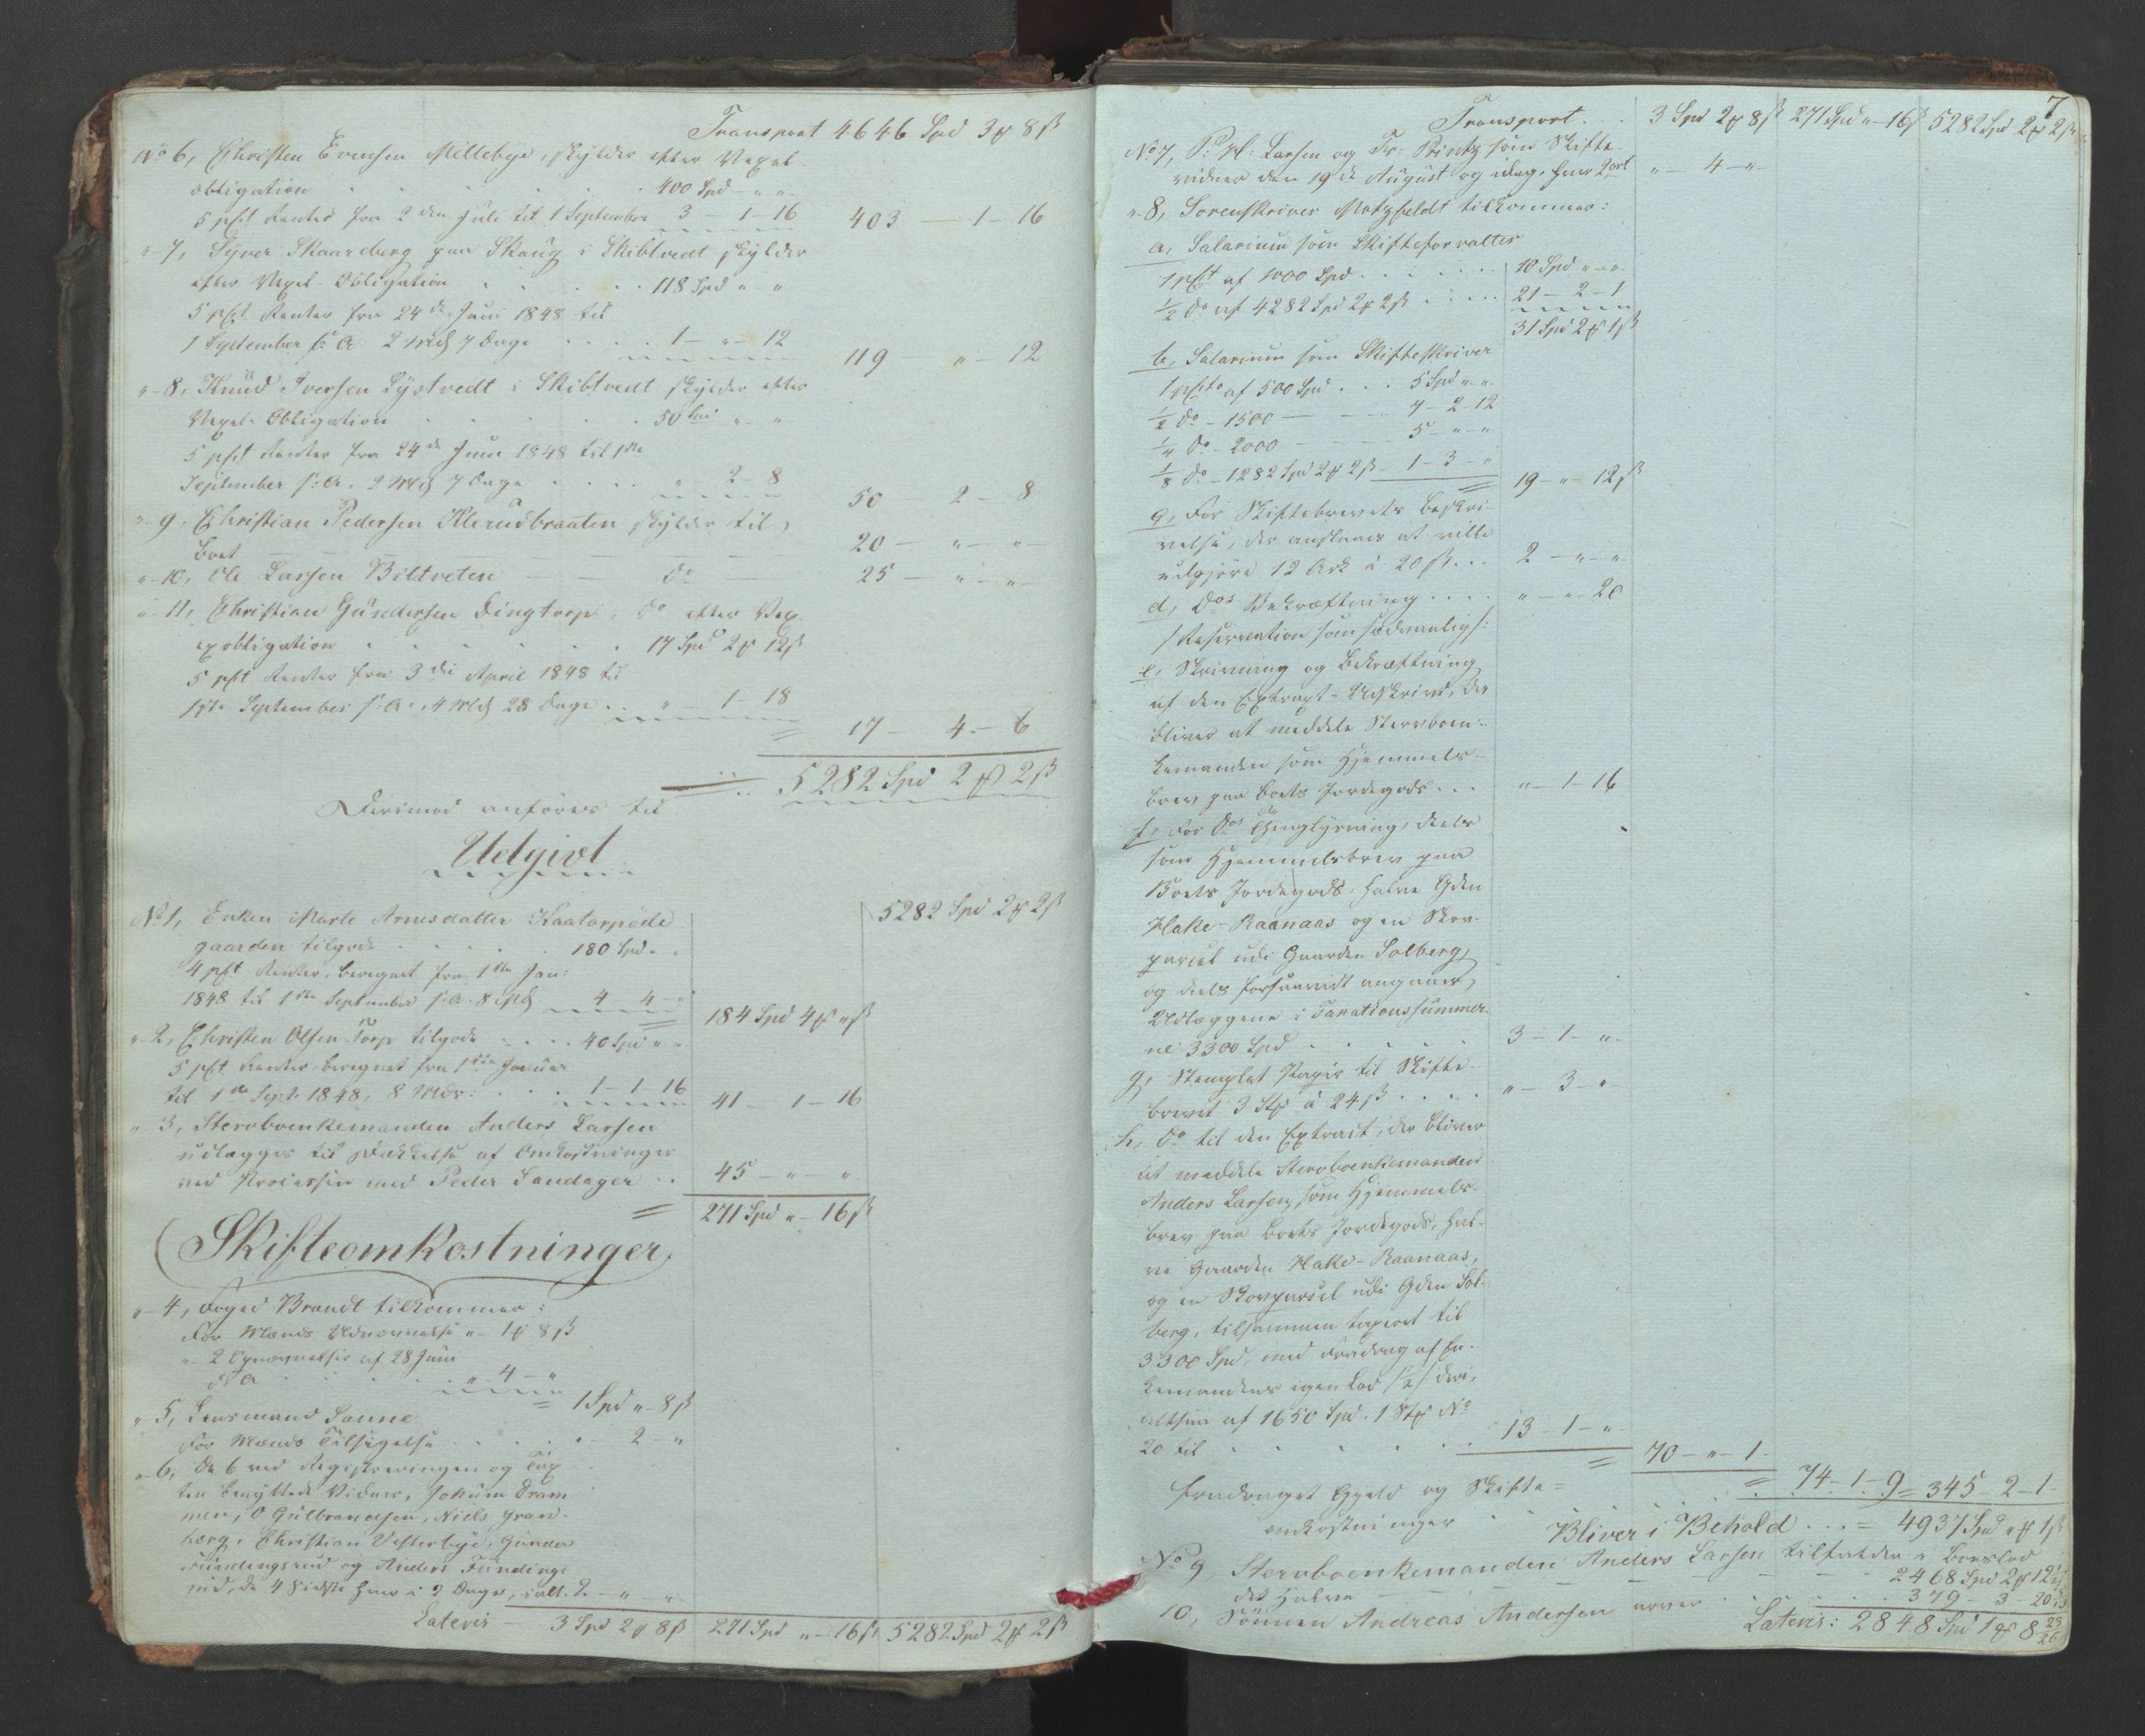 Transport 4646 Spd 3 ꝑ 8 ß
No 6, Christen Evensen Millebye, skylder efter Vexel
obligation . . . 400 Spd " "
5 pCt Renter fra 2den Juli til 1 September 3 – 1 – 16 403 – 1 – 16
"- 7, Syver Skaarderg paa Skaug i Skibtvedt skylder
efter Vexel-Obligation . . . 118 Spd " – "
5 pCt Renter fra 24de Juni 1848 til
1 September s: A: 2 Mdr 7 Dage . . . 1 – " – 12 119 – " – 12
"- 8, Knud Iversen Lystvedt i Skibtvedt skylder efter
Vexel-Obligation . . . 50 Spd " – "
5 pCt Renter fra 24de Juni 1848 til 1ste
September s: A. 2 Mdr 7 Dage . . . " 2 – 8 50 2 – 8
"- 9, Christian Pedersen Klerudbraaten skylder til
Boet — — — 20 – " – "
"- 10, Ole Larsen Biltveten — — do 25 – " – "
"- 11, Christian Gundersen Dingtorp, do efter Vex
exobligation . . . 17 Spd 2 ꝑ 12 ß
5 pCt Renter fra 3die April 1848 til
1ste September s: A: 4 Mdr 28 Dage . . " 1 – 18
= 17 – 4 – 6
5282 Spd 2 ꝑ 2 ß
Derimod anføres til
Udgivt
5282 Spd 2 ꝑ 2 ß
No 1, Enken Marte Arnesdatter Kaatorpøde
gaarden tilgode . . . 180 Spd " "
4 pCt Renter, beregnet fra 1ste Jan:
1848 til 1ste September s: A. 8 Mdr 4 – 4 – " 184 Spd 4 ꝑ " ß
"- 2, Christen Olsen Torp tilgode . . . 40 Spd " "
5 pCt Renter, beregnet fra 1ste Januar
til 1ste Sept. 1848, 8 Mdr: . . . 1 – 1 – 16 41 – 1 – 16
"- 3, Stervboenkemanden Anders Larsen
udlægges til Dækkelse af Omkostninger
ved Processen med Peder Sandager . . 45 – " – "
= 271 Spd " – 16 ß
Skifteomkostninger
"- 4, Foged Brandt tilkommer:
For Mænds Udnævnelse " – 1 ꝑ 8 ß
"- 2 Opnævnelser af 28 Juni
d: A . . . " 4 – "
= 1 Spd " – 8 ß
"- 5, Lensmand Sanne
for Mænds Tilsigelse . . . " – 2 – "
"- 6, De 6 ved Registreringen og Tax
ten benyttede Vidner, Jokum Dram
men, O Gulbrandsen, Niels Gran-
berg, Christian Vesterbye, Gunder
Fundingsrud og Anders Fundings
rud, de 4 sidste hver i 2 Dage, ialt. 2 – " – "
Lateris – 3 Spd 2 ꝑ 8 ß 271 Spd " – 16 ß 5282 Spd 2 ꝑ 2 ß
7
Transport . . . 3 Spd 2 ꝑ 8 ß 271 Spd " – 16 ß 5282 Spd 2 ꝑ 2 ß
No 7, P: N: Larsen og Fr: Printz som Skifte-
vidner den 19de August og idag, hver 2 ort " – 4 – "
"- 8, Sorenskriver Motzfeldt tilkommer:
a, Salarium som Skifteforvalter
1 pCt af 1000 Spd . . . 10 Spd " – "
½ do af 4282 Spd 2 ꝑ 2 ß . . . 21 – 2 – 1
31 Spd 2 ꝑ 1 ß
b, Salarium som Skifteskriver
1 pCto af 500 Spd . . . 5 Spd " – "
½ do – 1500 — 7 – 2 – 12
¼ do – 2000 — 5 – " – "
⅛ do – 1282 Spd 2 ꝑ 2 ß – 1 – 3 – "
= 19 – " – 12 ß
c, For Skiftebrevets Beskri-
velse, der ansaaes at ville
udgjøre 12 Ark à 20 ß . . . 2 – " – "
d, Dos Bekræftning . . . " – " – 20
/Reservation som sædvanlig/:
e, Skrivning og Bekræftning
af den Extract-Udskrivt, der
bliver at meddele Stervboen-
kemanden som Hjemmels-
brev paa Boets Jordegods . . . " – 1 – 16
f, For Dos Thinglysning, deels
som Hjemmelsbrev paa
Boets Jordegods, halve Gden
Hake-Raanaas og en Skov-
parcel udi Gaarden Solberg,
og deels forsaavidt angaaer
Udlæggene i Taxationssummer-
ne 3300 Spd . . . 3 – 1 – "
g, Stemplet Papir til Skifte-
brevet 3 Stk à 24 ß . . . " – 3 – "
h, Do til den Extract, der bliver
at meddele Stervboenkemanden
Anders Larsen, som Hjemmels-
brev paa Boets Jordegods, hal-
ve Gaarden Hake-Raanaas,
og en Skovparcel udi Gden Sol-
berg, tilsammen taxeret til
3300 Spd, med Fradrag af En-
kemandens egen Lod /½/ deri,
altsaa af 1650 Spd. 1 Stk No
20 til . . . 13 – 1 – "
= 70 – " – 1
= 74 – 1 – 9 = 345 – 2 – 1
fradraget Gjeld og Skifte=
omkostninger . . Bliver i Behold . . . = 4937 Spd " ꝑ 1 ß
No 9, Stervboenkemanden Anders Larsen tilfalder i Boeslod
det Halve — — — 2468 Spd 2 ꝑ 12½
10, Sønnen Andreas Andersen arver . . . 379 – 3 – 20
Lateris: 2848 Spd 1 ꝑ 8 23/26